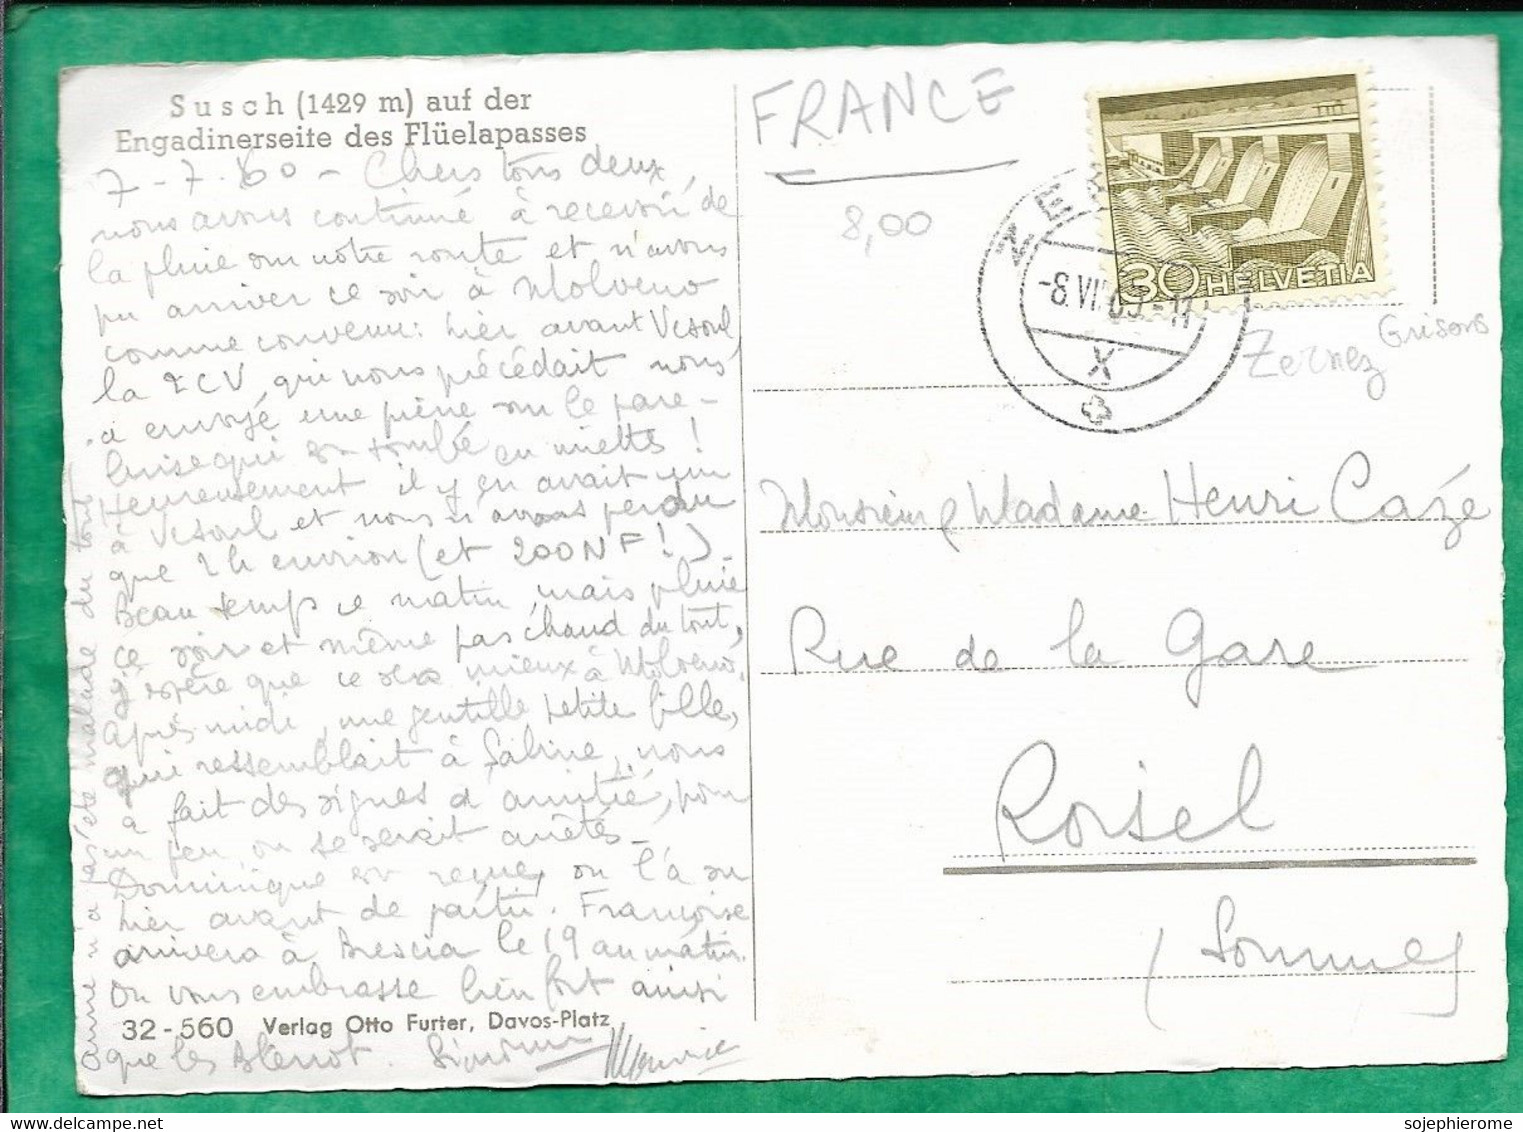 Susch (1429 m) auf der
Engadinerseite des Flüelapasses
7-7-60 - Chers tous deux,
nous avons continué à recevoir de
la pluie sur notre route et n'avons
pu arriver ce soir à Molveno
comme convenu: hier avant Vesoul
la 2CV qui nous précédait nous
a envoyé une pierre sur le pare-
brise qui est tombé en miettes!
Heureusement il y en avait un
à Vesoul et nous n'avons perdu
que 2 h environ (et 200 NF!).
Beau temps ce matin, mais pluie
ce soir et même pas chaud du tout,
j'espère que ce sera mieux à Molveno.
Après midi, une gentille petite fille,
qui ressemblait à Sabine, nous
a fait des signes d'amitié, pour
un peu, on se serait arrêtés -
Dominique est reçue, on l'a su
hier avant de partir. Françoise
arrivera à Brescia le 19 au matin.
On vous embrasse bien fort ainsi
32-560 Verlag Otto Furter, Davos-Platz
que les
Maurice
n'a pas été malade du tout
FRANCE
8,00
ZE
-8.VII 60-11
X
30 HELVETIA
Zernez Grisons
Monsieur & Madame Henri Cazé
Rue de la Gare
Roisel
(Somme)
sojephierome